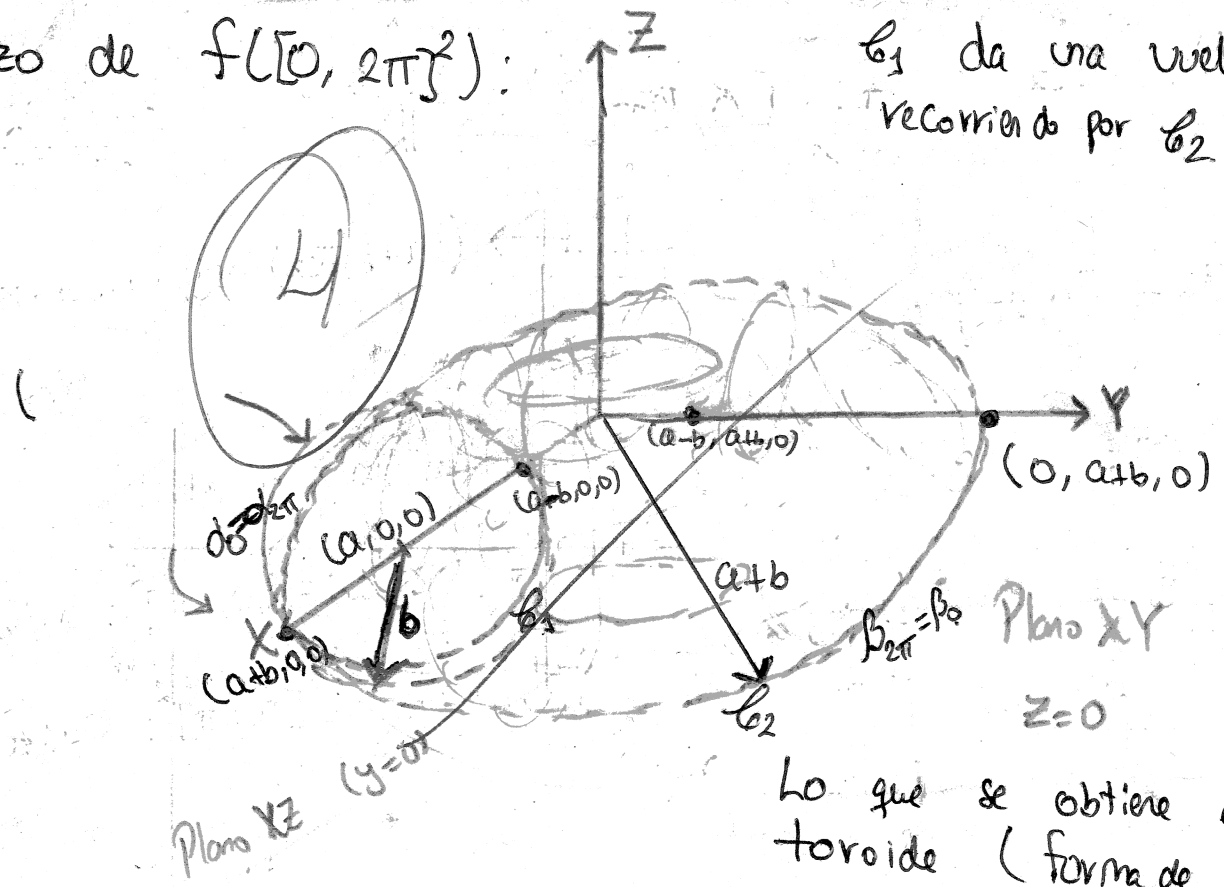 zo de f([0, 2π]²):
Z
C₁ da una vuel
recorriendo por C₂
(
Y
(a-b, a+b, 0)
(0, a+b, 0)
(a-b,0,0)
(a,0,0)
α₀=α₂π
a+b
b
C₁
X
(a+b,0,0)
β₂π=β₀
Plano XY
C₂
Z=0
(y=0)
Plano XZ
Lo que se obtiene
toroide (forma de